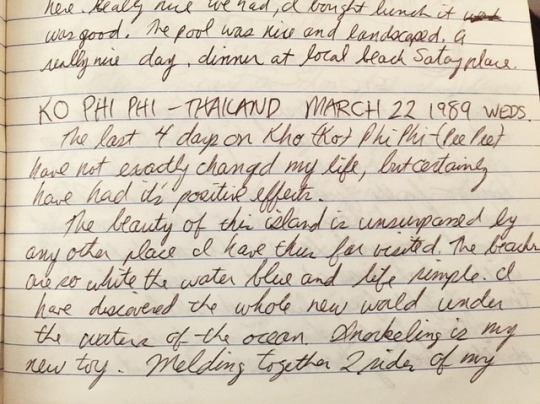 here. Really nice we had, I bought lunch it
was good. The pool was nice and landscaped. A
really nice day, dinner at local beach Satay place.
KO PHI PHI - THAILAND MARCH 22 1989 WEDS.
The last 4 days on Kho (Ko) Phi Phi (Pee Pee)
have not exactly changd my life, but certainly
have had it's positive effects.
The beauty of this island is unsurpassed by
any other place I have thus far visited. The beachs
are so white the water blue and life simple. I
have discovered the whole new world under
the waters of the ocean. Snorkeling is my
new toy. Melding together 2 sides of my